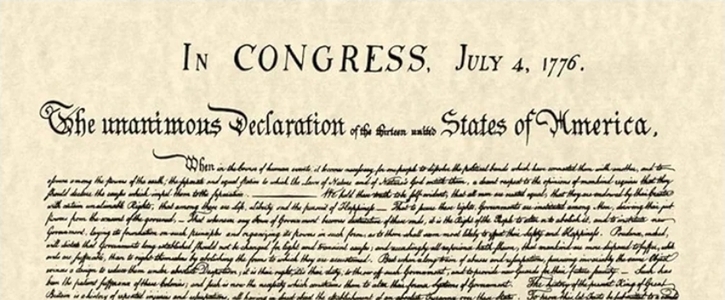 IN CONGRESS, JULY 4, 1776.
The unanimous Declaration of the thirteen united States of America,
When in the Course of human events, it becomes necessary for one people to dissolve the political bands which have connected them with another, and to
assume among the powers of the earth, the separate and equal station to which the Laws of Nature and of Nature's God entitle them, a decent respect to the opinions of mankind requires that they
should declare the causes which impel them to the separation. We hold these truths to be self-evident, that all men are created equal, that they are endowed by their Creator
with certain unalienable Rights, that among these are Life, Liberty and the pursuit of Happiness. — That to secure these rights, Governments are instituted among Men, deriving their just
powers from the consent of the governed, — That whenever any Form of Government becomes destructive of these ends, it is the Right of the People to alter or to abolish it, and to institute new
Government, laying its foundation on such principles and organizing its powers in such form, as to them shall seem most likely to effect their Safety and Happiness. Prudence, indeed,
will dictate that Governments long established should not be changed for light and transient causes; and accordingly all experience hath shewn, that mankind are more disposed to suffer, while
evils are sufferable, than to right themselves by abolishing the forms to which they are accustomed. But when a long train of abuses and usurpations, pursuing invariably the same Object
evinces a design to reduce them under absolute Despotism, it is their right, it is their duty, to throw off such Government, and to provide new Guards for their future security. — Such has
been the patient sufferance of these Colonies; and such is now the necessity which constrains them to alter their former Systems of Government. The history of the present King of Great
Britain is a history of repeated injuries and usurpations, all having in direct object the establishment of an absolute Tyranny over these States.